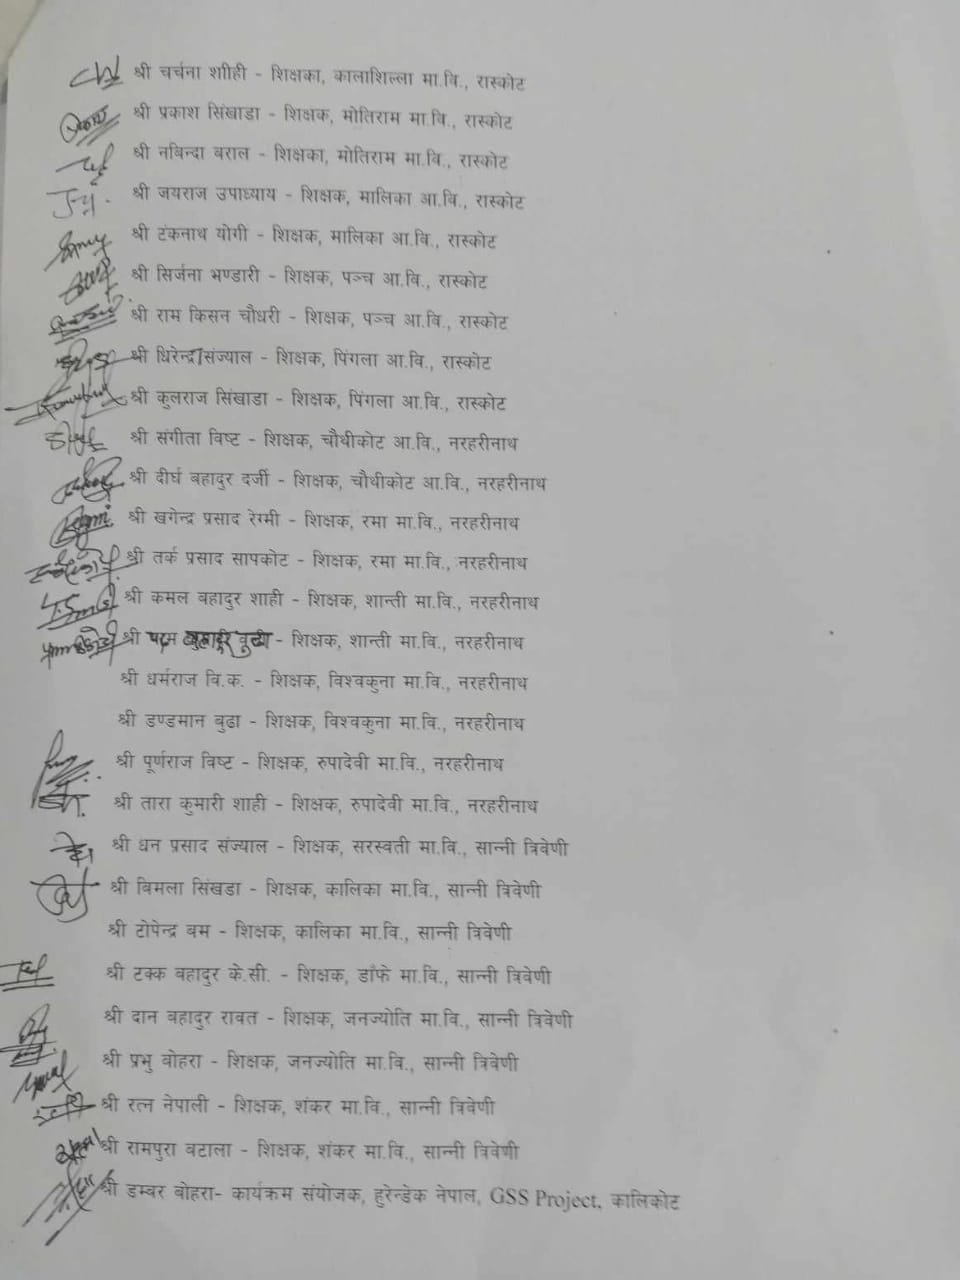 श्री चर्चना शाीही - शिक्षका, कालाशिल्ला मा.वि., रास्कोट
श्री प्रकाश सिंखाडा - शिक्षक, मोतिराम मा.वि., रास्कोट
श्री नबिन्दा बराल - शिक्षका, मोतिराम मा.वि., रास्कोट
श्री जयराज उपाध्याय - शिक्षक, मालिका आ.वि., रास्कोट
श्री टंकनाथ योगी - शिक्षक, मालिका आ.वि., रास्कोट
श्री सिर्जना भण्डारी - शिक्षक, पञ्च आ.वि., रास्कोट
श्री राम किसन चौधरी - शिक्षक, पञ्च आ.वि., रास्कोट
श्री धिरेन्द्र संज्याल - शिक्षक, पिंगला आ.वि., रास्कोट
श्री कुलराज सिंखाडा - शिक्षक, पिंगला आ.वि., रास्कोट
श्री संगीता विष्ट - शिक्षक, चौथीकोट आ.वि., नरहरीनाथ
श्री दीर्घ बहादुर दर्जी - शिक्षक, चौथीकोट आ.वि., नरहरीनाथ
श्री खगेन्द्र प्रसाद रेग्मी - शिक्षक, रमा मा.वि., नरहरीनाथ
श्री तर्क प्रसाद सापकोट - शिक्षक, रमा मा.वि., नरहरीनाथ
श्री कमल बहादुर शाही - शिक्षक, शान्ती मा.वि., नरहरीनाथ
श्री पदम बहादुर बुढा - शिक्षक, शान्ती मा.वि., नरहरीनाथ
श्री धर्मराज वि.क. - शिक्षक, विश्वकुना मा.वि., नरहरीनाथ
श्री डण्डमान बुढा - शिक्षक, विश्वकुना मा.वि., नरहरीनाथ
श्री पूर्णराज विष्ट - शिक्षक, रुपादेवी मा.वि., नरहरीनाथ
श्री तारा कुमारी शाही - शिक्षक, रुपादेवी मा.वि., नरहरीनाथ
श्री धन प्रसाद संज्याल - शिक्षक, सरस्वती मा.वि., सान्नी त्रिवेणी
श्री बिमला सिंखडा - शिक्षक, कालिका मा.वि., सान्नी त्रिवेणी
श्री टोपेन्द्र बम - शिक्षक, कालिका मा.वि., सान्नी त्रिवेणी
श्री टक्क बहादुर के.सी. - शिक्षक, डाँफे मा.वि., सान्नी त्रिवेणी
श्री दान बहादुर रावत - शिक्षक, जनज्योति मा.वि., सान्नी त्रिवेणी
श्री प्रभु वोहरा - शिक्षक, जनज्योति मा.वि., सान्नी त्रिवेणी
श्री रत्न नेपाली - शिक्षक, शंकर मा.वि., सान्नी त्रिवेणी
श्री रामपुरा बटाला - शिक्षक, शंकर मा.वि., सान्नी त्रिवेणी
श्री डम्बर बोहरा- कार्यक्रम संयोजक, हुरेन्डेक नेपाल, GSS Project, कालिकोट